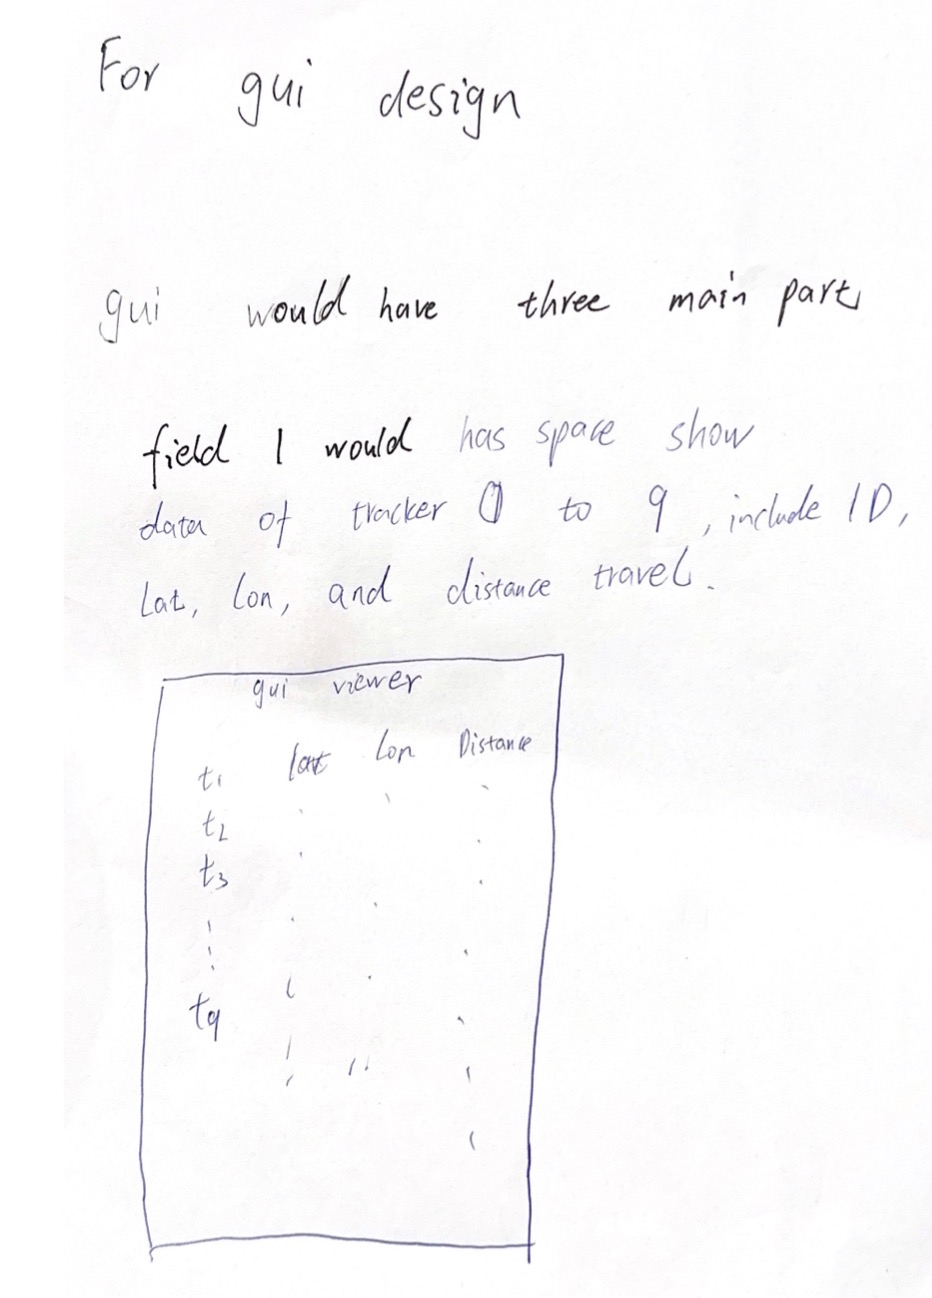 For gui design
gui would have three main part
field 1 would has space show
data of tracker 0 to 9, include ID,
Lat, lon, and distance travel.
gui viewer
lat Lon Distance
t1
t2
t3
t9